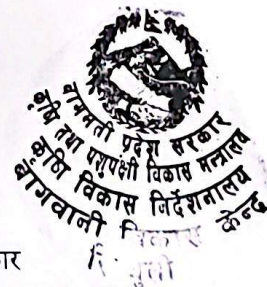 बागमती प्रदेश सरकार
कृषि तथा पशुपक्षी विकास मन्त्रालय
कृषि विकास निर्देशनालय
बागवानी विकास केन्द्र
कार